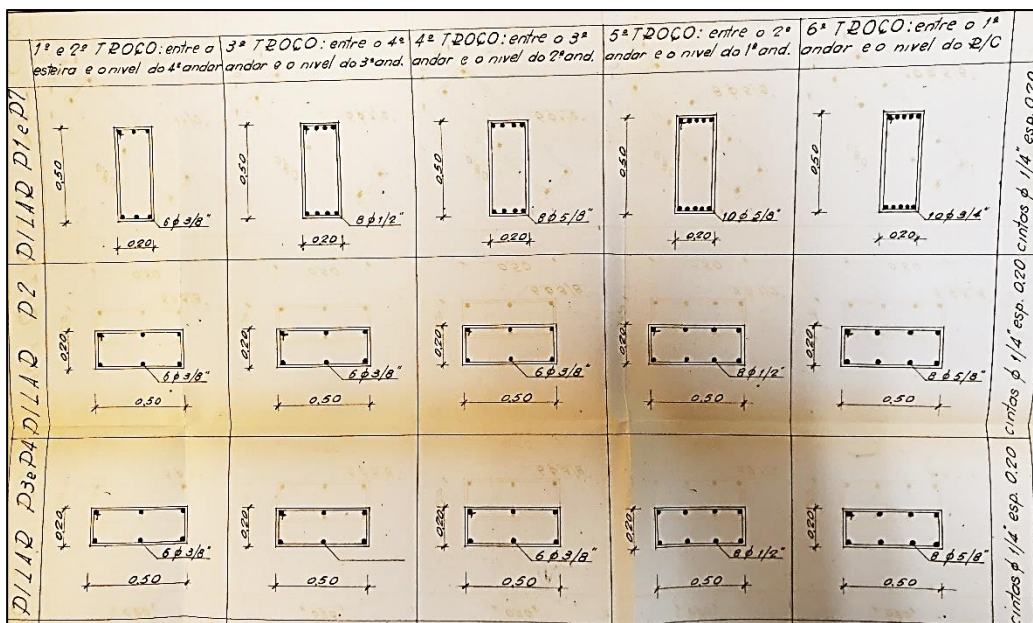 1º e 2º TROÇO: entre a
esteira e o nivel do 4º andar
3º TROÇO: entre o 4º
andar e o nivel do 3º and.
4º TROÇO: entre o 3º
andar e o nivel do 2º and.
5º TROÇO: entre o 2º
andar e o nivel do 1º and.
6º TROÇO: entre o 1º
andar e o nivel do R/C
PILAR P1 e P7
0,50
0,20
6 ϕ 3/8"
0,50
0,20
8 ϕ 1/2"
0,50
0,20
8 ϕ 5/8"
0,50
0,20
10 ϕ 5/8"
0,50
0,20
10 ϕ 3/4"
cintas ϕ 1/4" esp. 0.20
PILAR P2
0,20
6 ϕ 3/8"
0,50
0,20
6 ϕ 3/8"
0,50
0,20
6 ϕ 3/8"
0,50
0,20
8 ϕ 1/2"
0,50
0,20
8 ϕ 5/8"
0,50
cintas ϕ 1/4" esp. 0.20
PILAR P3 e P4
0,20
6 ϕ 3/8"
0,50
0,20
0,50
0,20
6 ϕ 3/8"
0,50
0,20
8 ϕ 1/2"
0,50
0,20
8 ϕ 5/8"
0,50
cintas ϕ 1/4" esp. 0.20